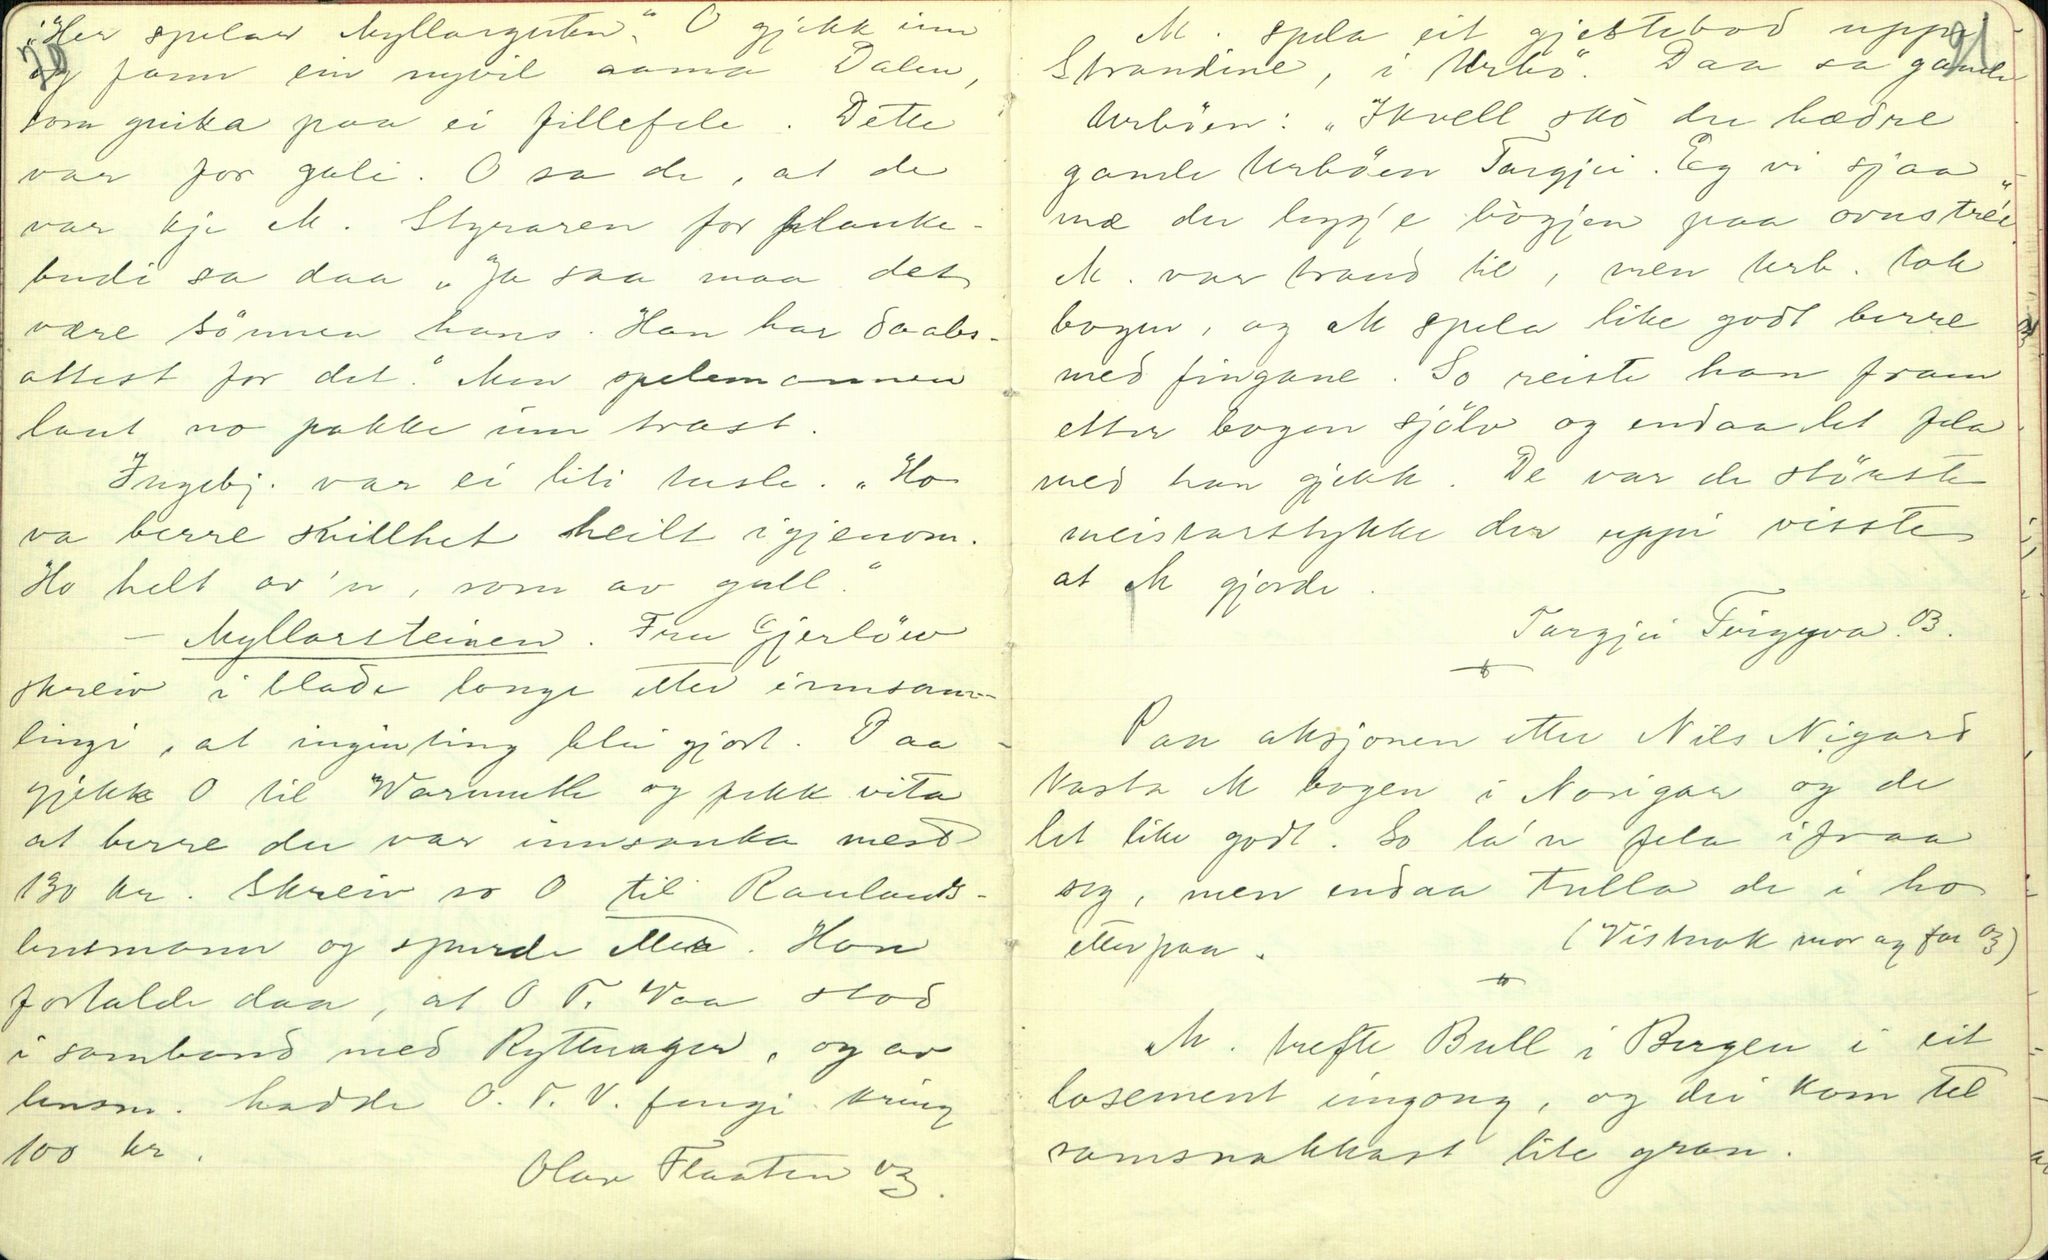 "Her spelar Myllarguten." O gjekk inn
20
og fann ein nyvil aama Dalen,
som gnika paa ei fillefele. Dette
var for gali. O sa de, at de
var kje M. Styraren for planke-
budi sa daa "Ja saa maa det
være Sönnen hans. Han har daabs-
attest for det." Men spelemannen
laut no pakke inn trast.
Ingebj. var ei liti tusle. "Ho
va berre skillhet heilt igjenom.
Ho helt av'n, som av gull."
- Myllarsteinen. Fru Gjerlöw
skreiv i blade lange etter innsam-
lingi, at ingenting blei gjort. Daa
gjekk O til Warmuth og fekk vita
at berre der var innsanka med
130 kr. Skreiv so O til Raulands-
lensmann og spurde etter. Han
fortalde daa, at O T. Vaa stod
i samband med Rytterager, og av
lensm. hadde O. T. V. fengi kring
100 kr.
Olav Flaaten og.
21
M. spela eit gjestebod uppi
Strandine, i Urbö. Daa sa gamle
Urböen: "Ikvell sko du hædre
gamle Urböen Targjei. Eg vi sjaa
mæ du legg'e bögjen paa ovnstrée"
M. var traud til, men Urb. tok
bogen, og M spela like godt berre
med fingane. So reiste han fram
etter bogen sjölv og endaa let fela
med han gjekk. De var de störste
meistarstykke der uppi visste
at M gjorde.
Targjei Feigyva. 03.
Paa aksjonen etter Nils Nigard
kasta M bogen i Norigar og de
let like godt. So la'n fela ifraa
seg, men endaa tulla de i ho
etterpaa. (Vistnok mor og far og)
M. trefte Bull i Bergen i eit
losement eingong, og dei kom til
samsnakkast lite gran.